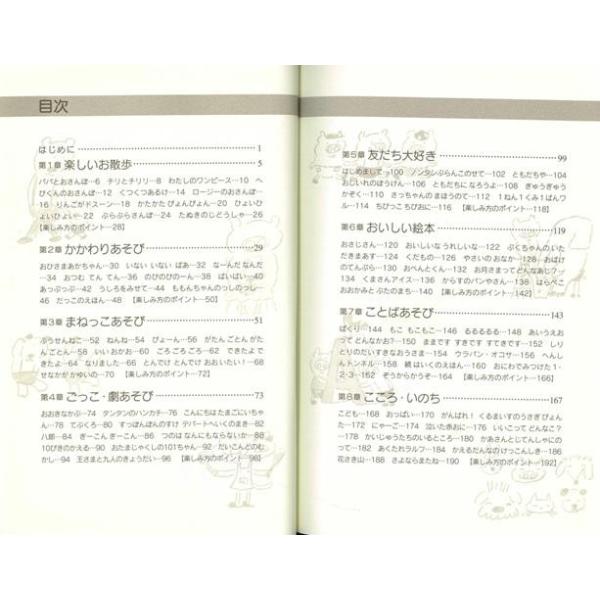 目次
はじめに 1
第1章 楽しいお散歩 5
パパとおさんぽ…6 チリとチリリ…8 わたしのワンピース…10 へ
びくんのおさんぽ…12 くつくつあるけ…14 ロージーのおさんぽ
…16 りんごがドスーン…18 かたかたぴょんぴょん…20 ひょい
ひょいひょい…22 ぶらぶらさんぽ…24 たぬきのじどうしゃ…26
【楽しみ方のポイント…28】
第2章 かかわりあそび 29
おひさまあかちゃん…30 いない いない ばあ…32 なーんだ なんだ
…34 おつむ てん てん…36 のびのびのーん…38 ばいばい…40
あっぷっぷ…42 うしろをみせて…44 ももんちゃんのっしのっし
…46 だっこのえほん…48 【楽しみ方のポイント…50】
第3章 まねっこあそび 51
ふうせんねこ…52 ねんね…54 ぴょーん…56 がたん ごとん がた
ん ごとん…58 いい おかお…60 ごろ ごろ ごろ…62 できたよ で
きたよ…64 なりました…66 とんでけ とんで けお おいたい！…68
せなかが かゆいの…70 【楽しみ方のポイント…72】
第4章 ごっこ・劇あそび 73
おおきなかぶ…74 タンタンのハンカチ…76 こんにちは たまごにいちゃ
ん…78 てぶくろ…80 すっぽんぽんのすけ デパートへいくのまき…82
八郎…84 ぎーこん ぎーこん…86 つのは なんにもならないか…88
10ぴきのかえる…90 おたまじゃくしの101ちゃん…92 だいこんどのむ
かし…94 王さまと九人のきょうだい…96 【楽しみ方のポイント…98】
第5章 友だち大好き 99
はじめまして…100 ノンタンぶらんこのせて…102 ともだちや…104
おしいれのぼうけん…106 ともだちになろうよ…108 ぎゅうぎゅう
かぞく…110 さっちゃんのまほうのて…112 1ねん1くみ1ばんワ
ル…114 ちびっこ ちびおに…116 【楽しみ方のポイント…118】
第6章 おいしい絵本 119
おさじさん…120 おいしい うれしいな…122 ぶくちゃんのいた
だきまあす…124 くだもの…126 やさいの おなか…128 おばけ
のてんぷら…130 おべんとくん…132 お月さまってどんなあじ？…
134 くまさんアイス…136 からすのパンやさん…138 はらぺこ
おおかみと ぶたのまち…140 【楽しみ方のポイント…142】
第7章 ことばあそび 143
ぱくり…144 もこ もこもこ…146 るるるるる…148 あいうえお
ってどんなかお？…150 ますです すです てすです…152 しり
とりのだいすきなおうさま…154 ウラパン・オコサ…156 へんし
んトンネル…158 続 はいくのえほん…160 おにわでみつけた 1・
2・3…162 ぞうからかうぞ…164 【楽しみ方のポイント…166】
第8章 こころ・いのち 167
こども…168 おっぱい…170 がんばれ！ くるまいすのうさぎ ぴょん
た…172 にゃーご…174 泣いた赤おに…176 いいこって どんなこ？
…178 かいじゅうたちのいるところ…180 かあさんとじてんしゃにの
って…182 あくたれラルフ…184 かえるだんなの けっこんしき…186
花さき山…188 さよならまたね…190 【楽しみ方のポイント…192】